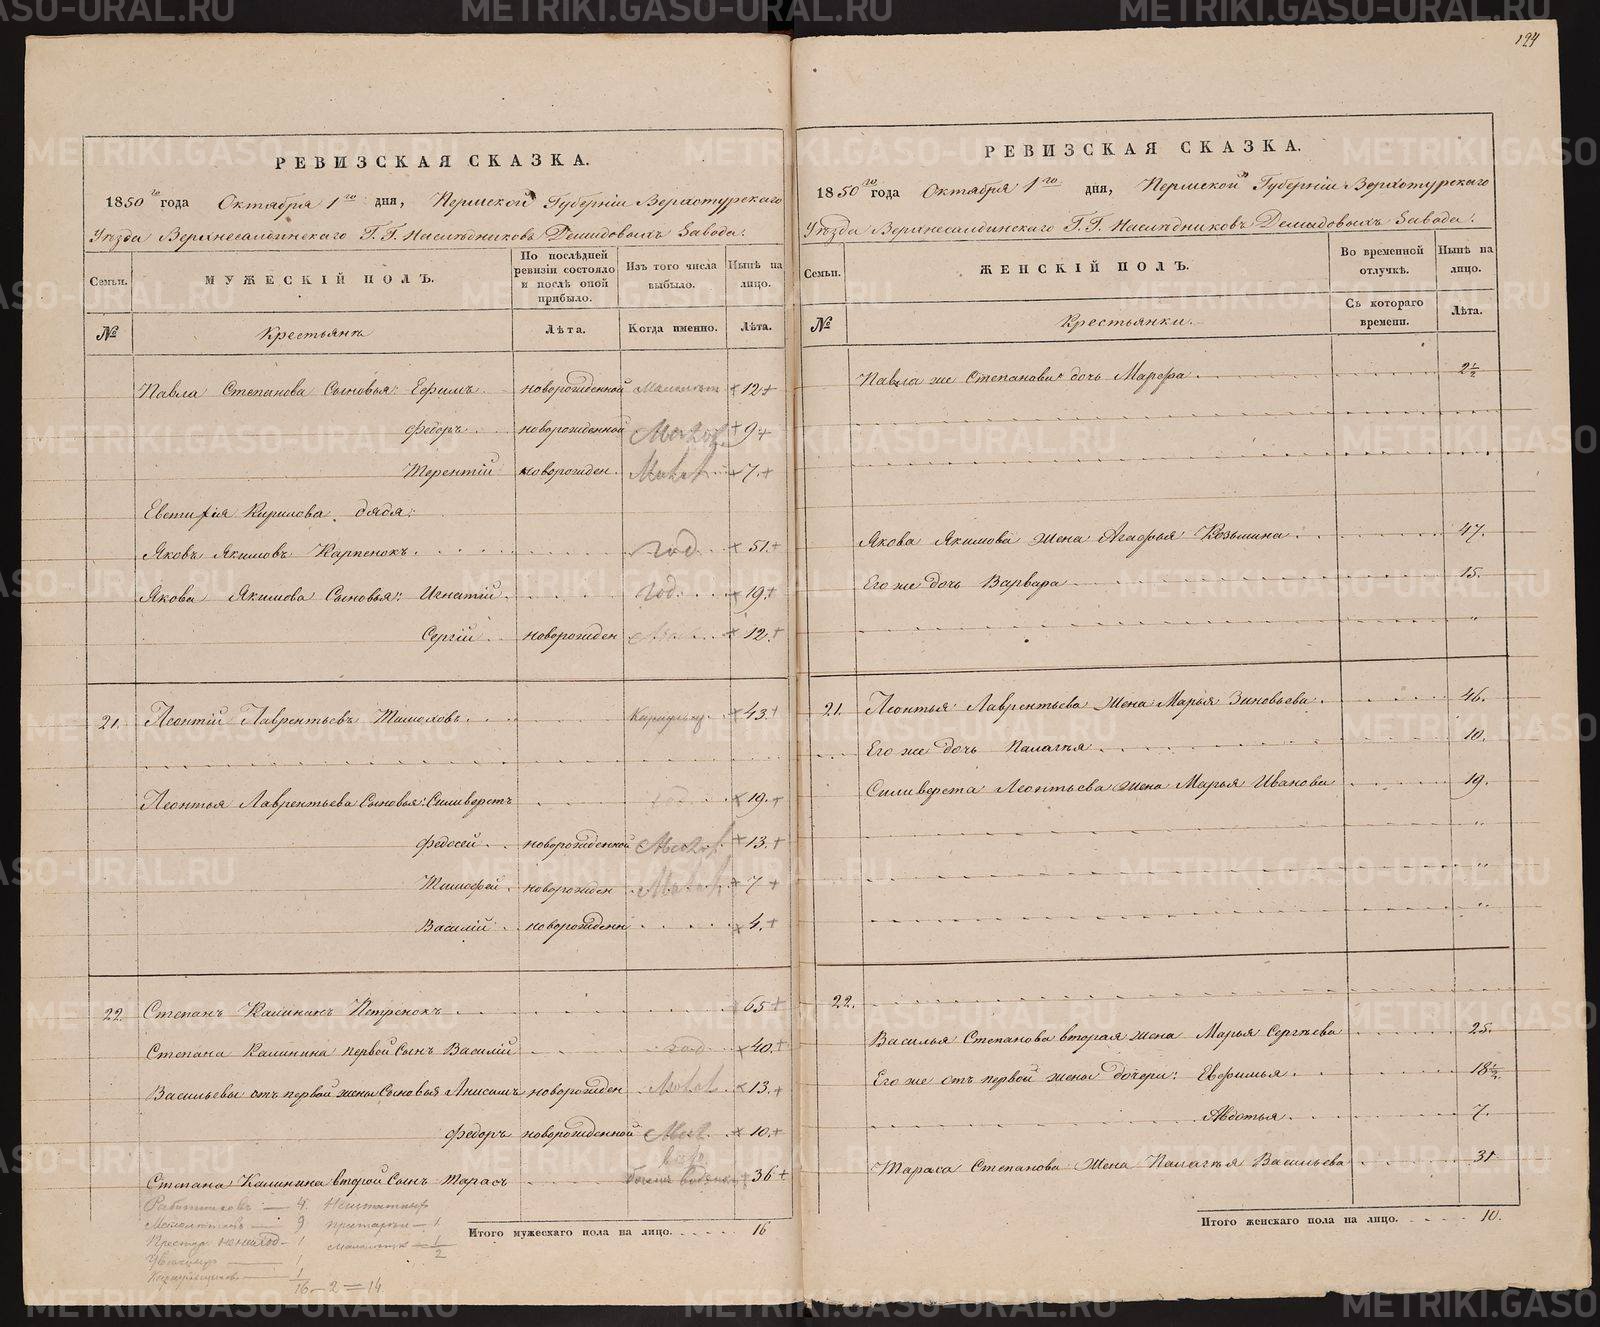 124
РЕВИЗСКАЯ СКАЗКА.
1850го года Октября 1го дня, Пермской Губернiи Верхотурскаго
Уѣзда Верхнесалдинскаго Г.Г. Наслѣдниковъ Демидовыхъ Завода.
Семьи. МУЖЕСКIЙ ПОЛЪ. По послѣдней ревизiи состояло и послѣ оной прибыло. Изъ того числа выбыло. Нынѣ на лицо.
№ Крестьянъ Лѣта. Когда именно. Лѣта.
Павла Степанова Сыновья: Ефимъ новорожденной Малолѣт 12
Федоръ новорожденной 9
Терентiй новорожден. 7
Евстифiя Кирилова дядя:
Яковъ Якимовъ Карпенокъ год 51
Якова Якимова Сыновья: Игнатiй год. 19
Сергiй новорожден 12
21. Леонтiй Лаврентьевъ Тимоховъ. 43
Леонтья Лаврентьева Сыновья: Силиверстъ год 19
Федосей новорожденной 13
Тимофей новорожден 7
Василiй новорожденн 4
22. Степанъ Калининъ Петренокъ 65
Степана Калинина первой Сынъ Василiй год 40
Васильевы отъ первой жены Сыновья Анисимъ новорожден 13
Федоръ новорожденной 10
Степана Калинина второй Сынъ Тарасъ 36
Итого мужескаго пола на лицо. 16
Работниковъ — 4
Малолѣтковъ — 9
— 1
— 1
— 1
16 — 2 = 14
престарѣл — 1
малолѣтк — 1
2
РЕВИЗСКАЯ СКАЗКА.
1850го года Октября 1го дня, Пермской Губернiи Верхотурскаго
Уѣзда Верхнесалдинскаго Г.Г. Наслѣдниковъ Демидовыхъ Завода.
Семьи. ЖЕНСКIЙ ПОЛЪ. Во временной отлучкѣ. Нынѣ на лицо.
№ Крестьянки. Съ котораго времени. Лѣта.
Павла же Степанова дочь Марфа 2½
Якова Якимова жена Агафья Козьмина 47.
Его же дочь Варвара 15.
21. Леонтья Лаврентьева жена Марья Зиновьева 46.
Его же дочь Палагѣя 10.
Силиверста Леонтьева жена Марья Иванова 19.
22.
Василья Степанова вторая жена Марья Сергѣева 25.
Его же отъ первой жены дочери: Евфимья 18½
Авдотья 7.
Тараса Степанова жена Палагѣя Васильева 31
Итого женскаго пола на лицо. 10.
METRIKI.GASO-URAL.RU